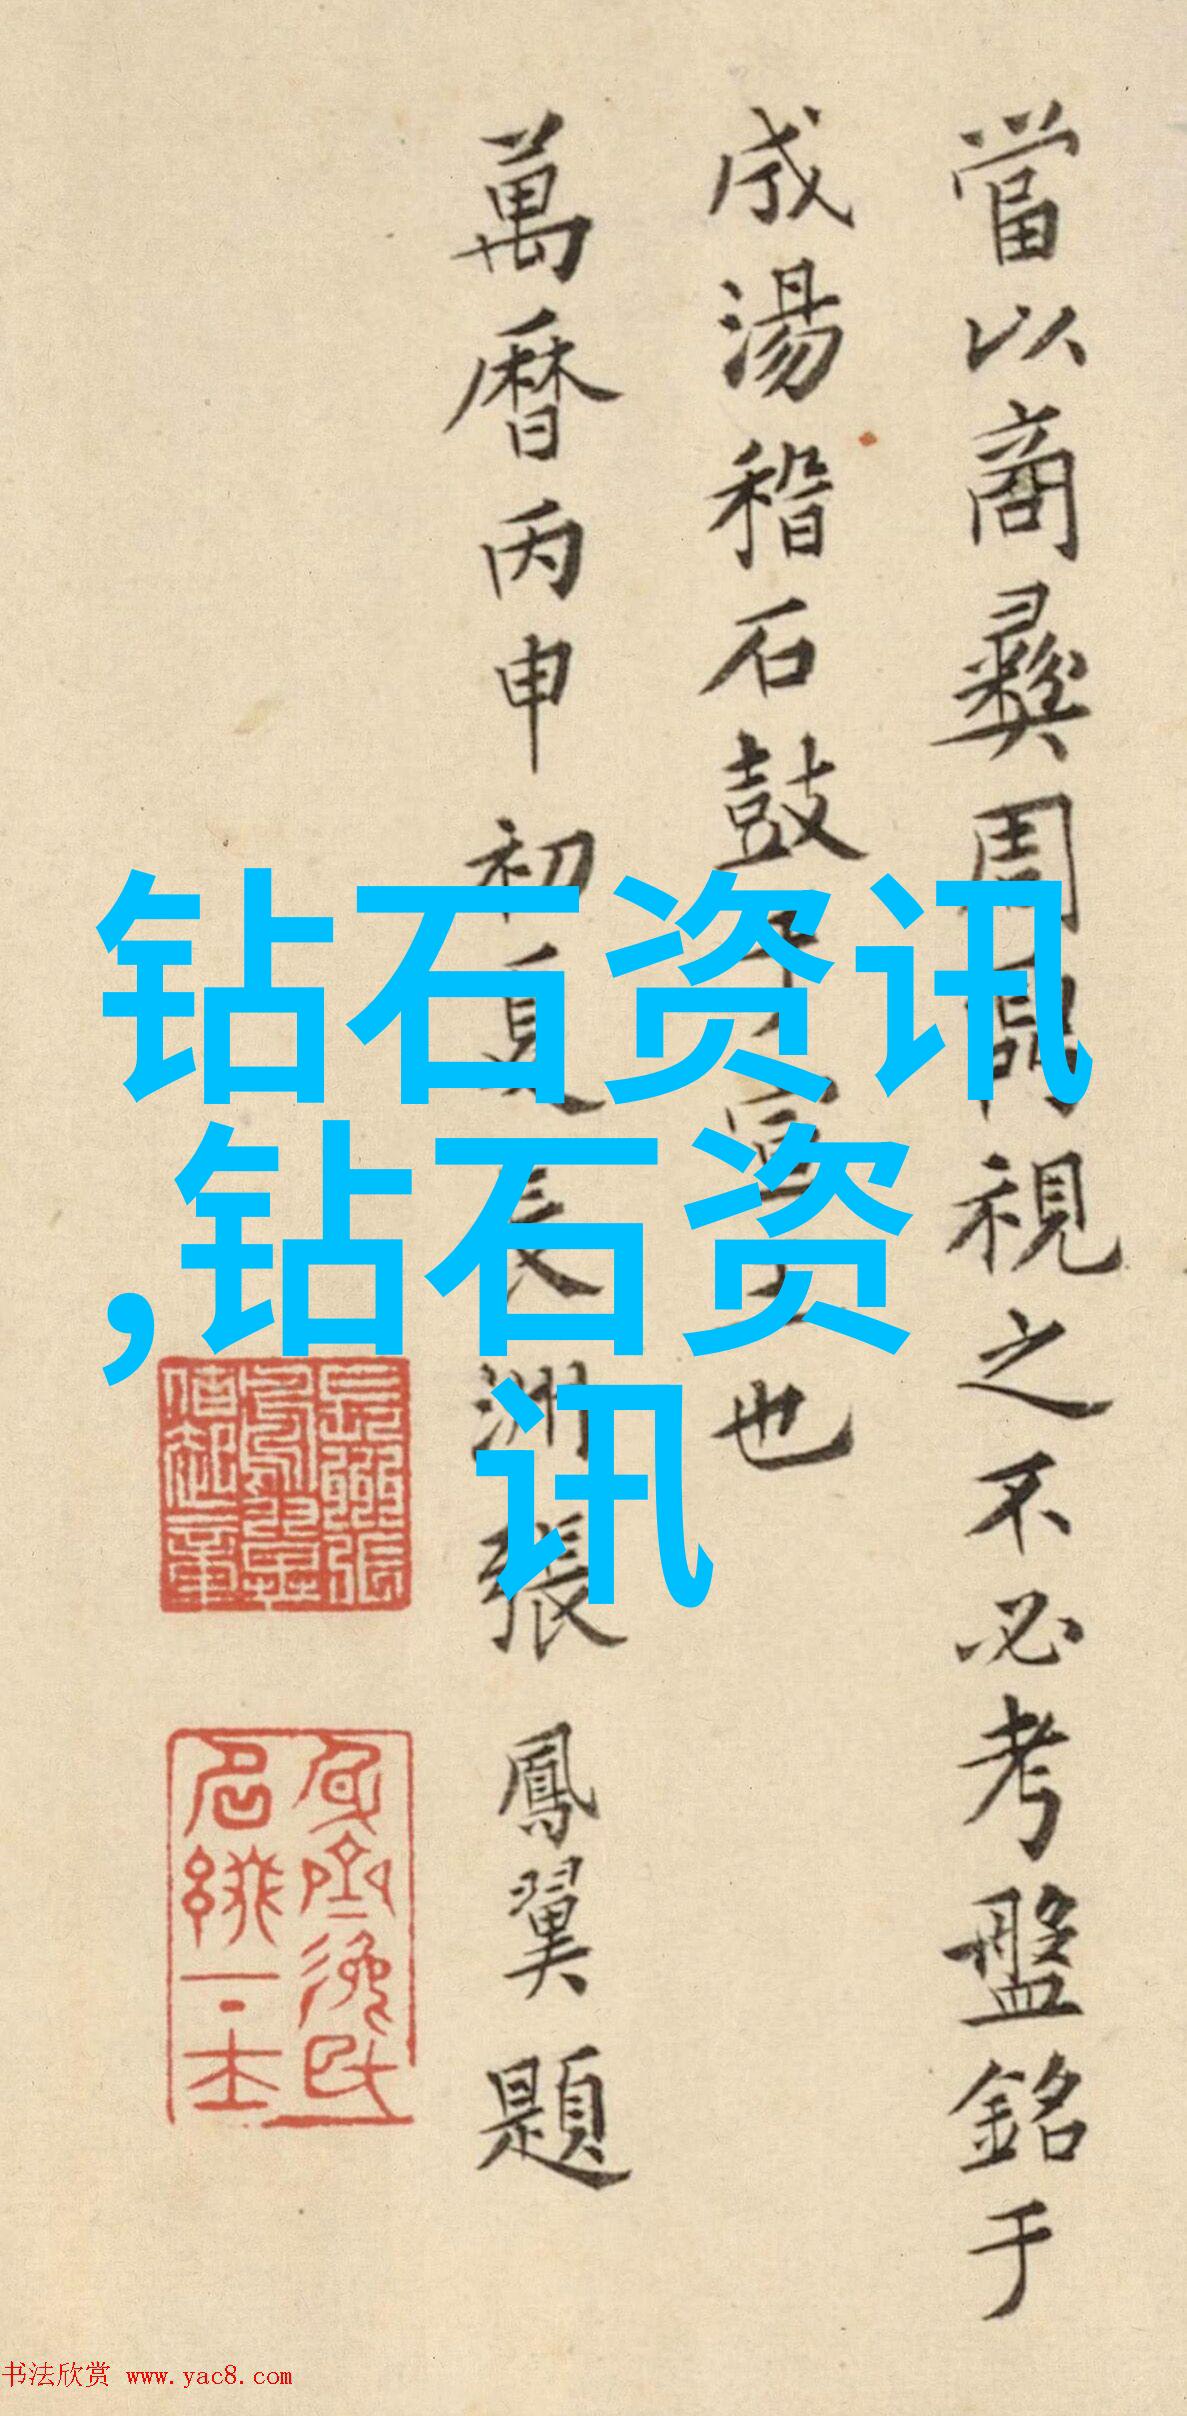 當以商彝周鼎視之不必考盤銘于
成湯稽石鼓于宣王也
萬曆丙申初夏長洲張鳳翼題
钻石资讯
,钻石资
讯
书法欣赏 www.yac8.com